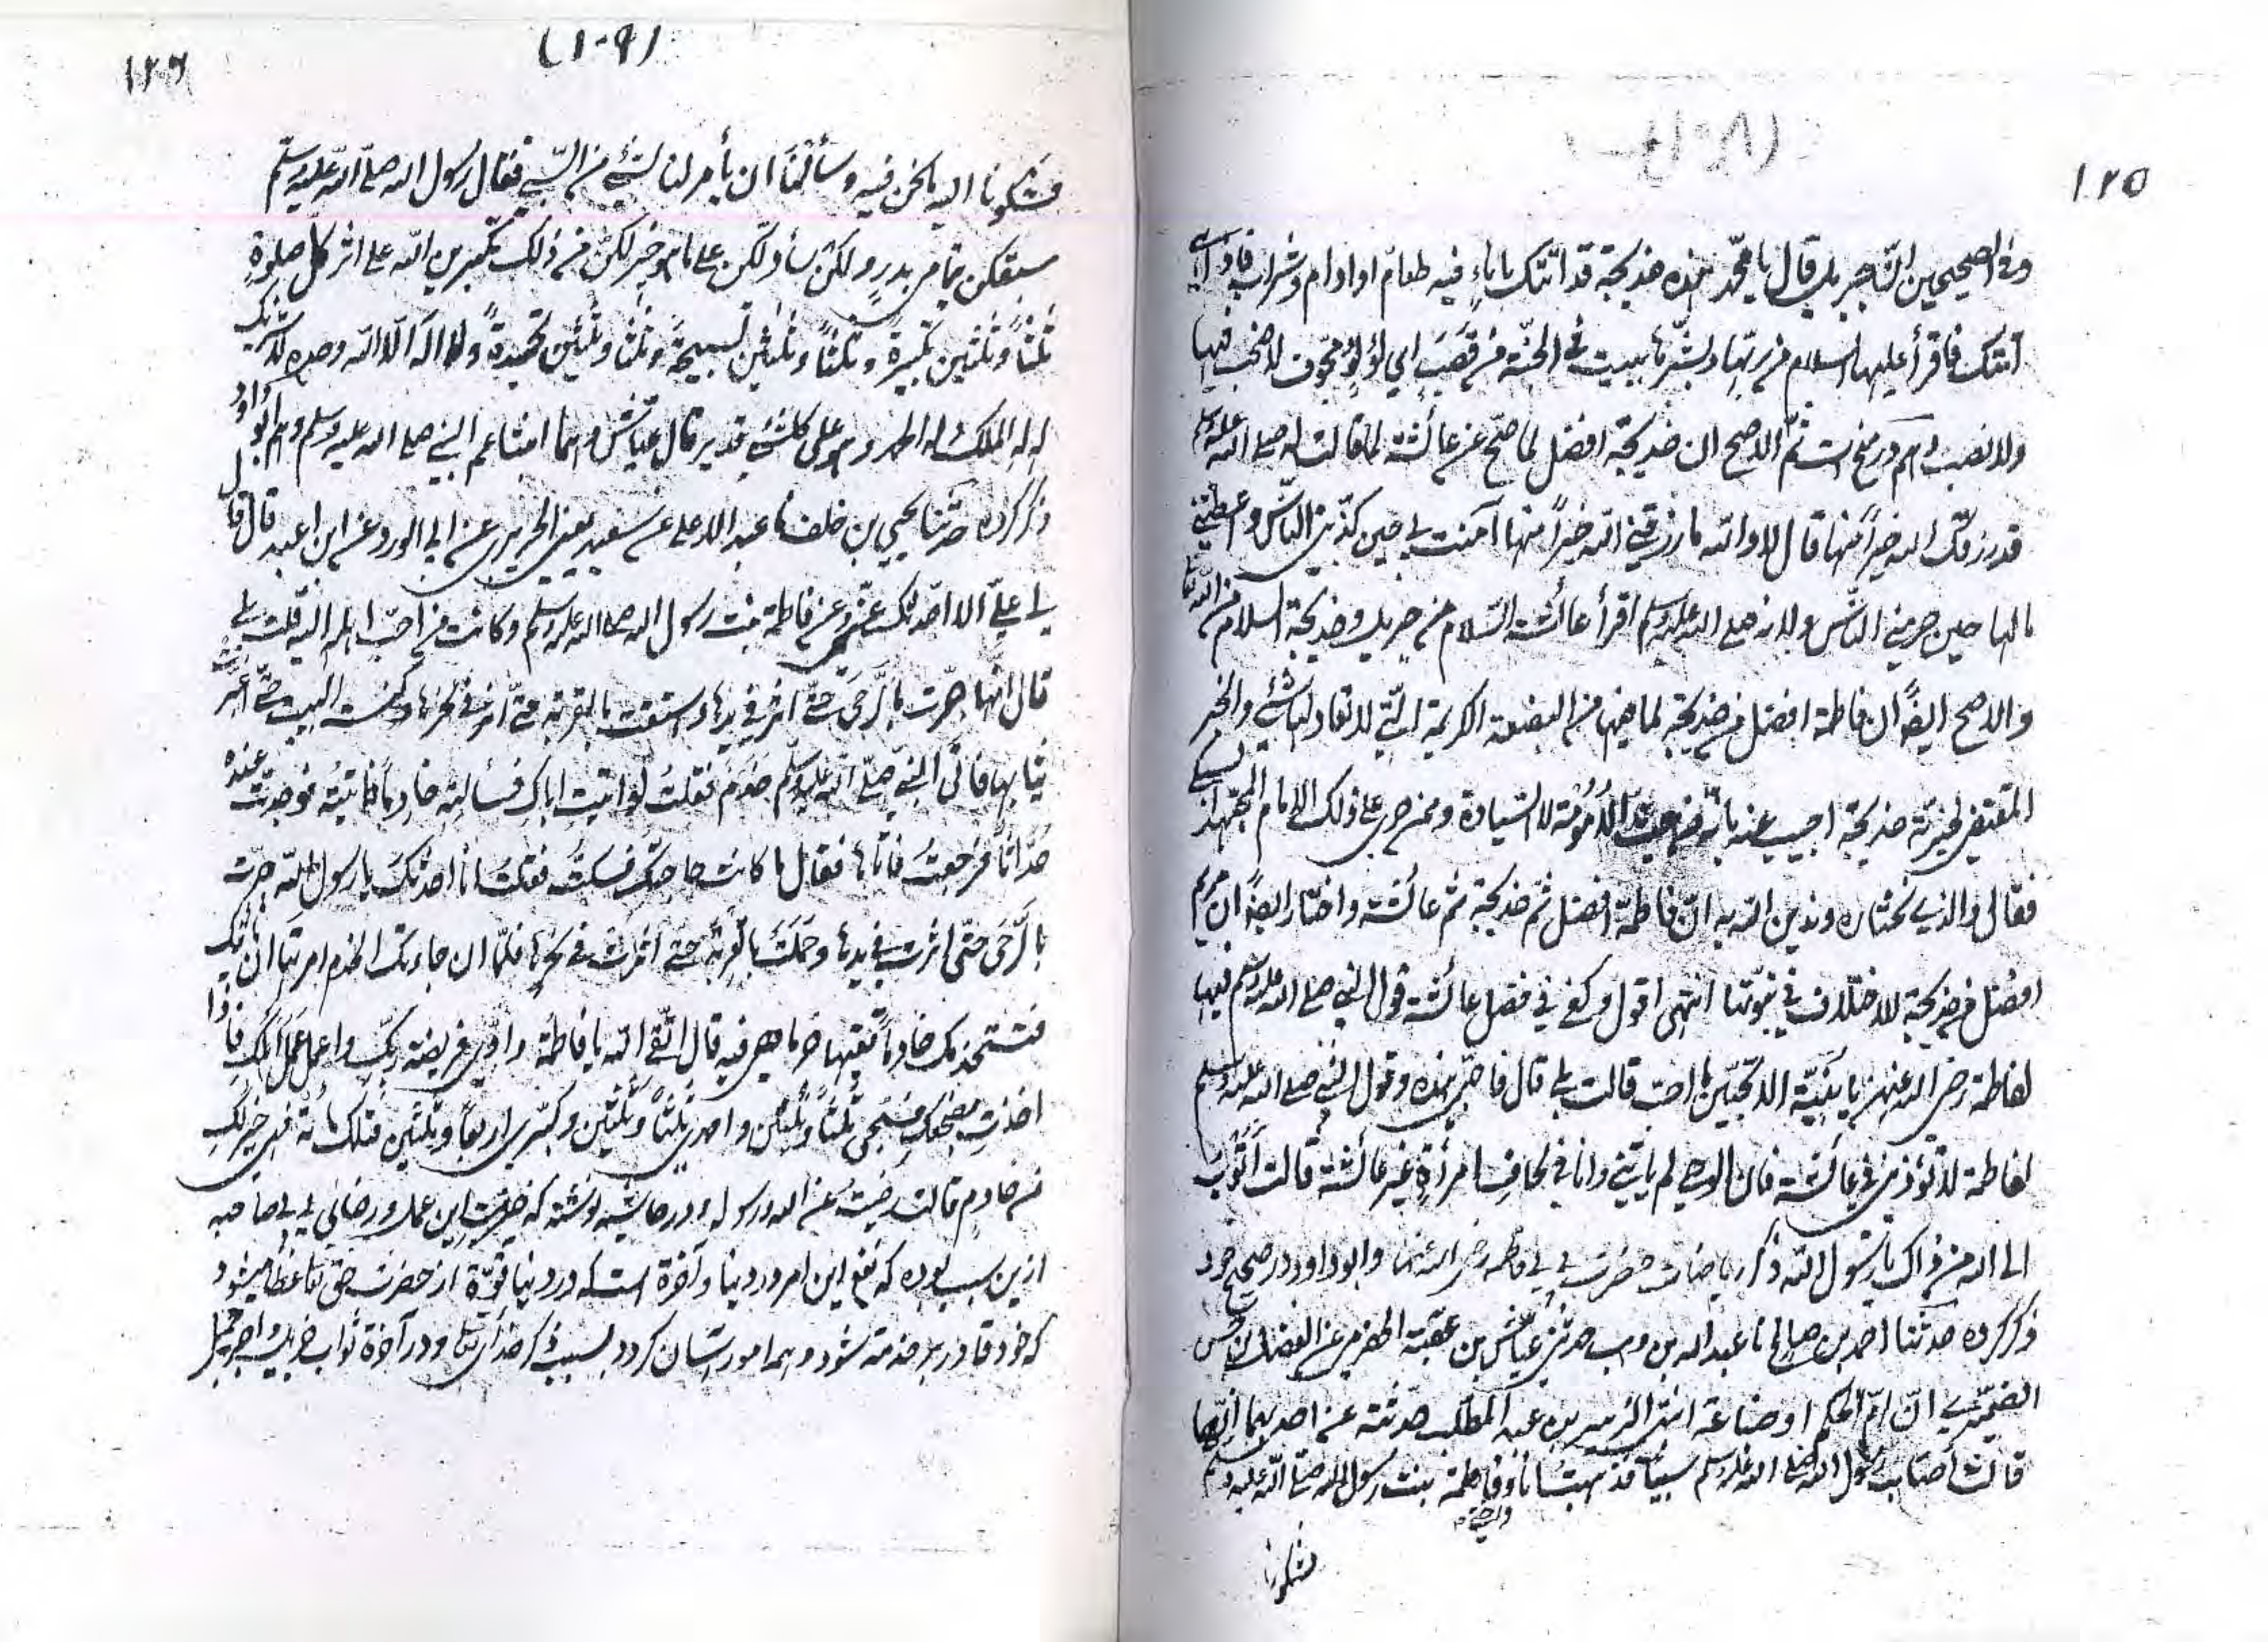 ١٢٥
وفی الصحیحین ان جبریل قال یا محمد هذه خدیجة قد اتتک باناء فیه طعام او ادام وشراب فاذا هی
اتتک فاقرأ علیها السلام من ربها وبشرها ببیت فی الجنة من قصب ای لؤلؤ مجوف لا صخب فیها
ولا نصب وهم در منح است ثم الاصح ان خدیجة افضل لما صح عن عائشة لما قالت له صلی الله علیه وسلم
قد رزقک الله خیراً منها قال لا والله ما رزقنی الله خیراً منها آمنت بی حین کذبنی الناس واعطتنی
مالها حین حرمنی الناس ولانه صلی الله علیه وسلم اقرأ عائشة السلام من جبریل وخدیجة السلام من الله تعا
والاصح ایضاً ان فاطمة افضل من خدیجة لما فیها من البضعة الکریمة التی لا تعادلها شئ والخبر
المقتضی لخیریة خدیجة اجیب عنه بانه من حیث الأمومة لا السیادة وممن جری علی ذلک الامام المجتهد
فقال والذی نختاره وندین الله به ان فاطمة افضل ثم خدیجة ثم عائشة واختار ایضاً ان مریم
افضل من خدیجة للاختلاف فی نبوتها انتهی اقول وکفی فی فضل عائشة قول النبی صلی الله علیه وسلم فیها
لفاطمة رضی الله عنها یا بنیة الا تحبین ما احب قالت بلی قال فاحبی هذه وقول النبی صلی الله علیه وسلم
لفاطمة لا تؤذینی فی عائشة فان الوحی لم یاتینی وانا فی لحاف امرأة غیر عائشة قالت أتوب
الی الله من ذاک یا رسول الله ذکر ریاضات حضرت بی بی فاطمه رضی الله عنها وابو داود در صحیح خود
ذکر کرده حدثنا احمد بن صالح نا عبد الله بن وهب حدثنی عیاش بن عقبة الحضرمی عن الفضل بن حسن
الضمری ان ام الحکم او ضباعة ابنتی الزبیر بن عبد المطلب حدثته عن احدیهما انها
قالت اصاب رسول الله صلی الله علیه وسلم سبیاً فذهبت انا وفاطمة بنت رسول الله صلی الله علیه وسلم
واختی
فشکونا
١٢٦
(١٠٩)
فشکونا الیه ما نحن فیه وسألناه ان یأمر لنا بشئ من السبی فقال رسول الله صلی الله علیه وسلم
سبقکن یتامی بدر ولکن سأدلکن علی ما هو خیر لکن من ذلک تکبرن الله علی اثر کل صلوة
ثلثاً وثلثین تکبیرة وثلثاً وثلثین تسبیحة وثلثا وثلثین تحمیدة ولا اله الا الله وحده لا شریک
له له الملک وله الحمد وهو علی کل شئ قدیر قال عیاش وهما ابنتا عم النبی صلی الله علیه وسلم وهم ابو داود
ذکر کرده حدثنا یحیی بن خلف نا عبد الاعلی عن سعید یعنی الجریری عن ابی الورد عن ابن اعبد قال قال
لی علی الا احدثک عنی وعن فاطمة بنت رسول الله صلی الله علیه وسلم وکانت من احب اهله الیه قلت بلی
قال انها جرت بالرحی حتی اثر فی یدها واستقت بالقربة حتی اثر فی نحرها وکنست البیت حتی اغبرت
ثیابها فاتی النبی صلی الله علیه وسلم خدم فقلت لو اتیت اباک فسألتیه خادماً فاتته فوجدت عنده
حداثاً فرجعت فاتاها فقال ما کانت حاجتک فسکتت فقلت انا احدثک یا رسول الله جرت
بالرحی حتی اثرت فی یدها وحملت بالقربة حتی اثرت فی نحرها فلما ان جاءتک الخدم امرتها ان تاتیک
فتستخدمک خادماً تقیها حر ما هی فیه قال اتقی الله یا فاطمة وادی فریضة ربک واعملی عمل اهلک فاذا
اخذت مضجعک فسبحی ثلثاً وثلثین واحمدی ثلثاً وثلثین وکبری اربعاً وثلثین فتلک مائة فهی خیر لک
من خادم قالت رضیت عن الله ورسوله ودر حاشیه نوشته که خیریت این عمل ورضائی بی بی صاحبه
ازین سبب بوده که نفع این امر در دنیا وآخرة است که در دنیا قوة از حضرت حق تعا عطا میشود
که خود قادر بر خدمة شود وهما امور آسان کردد بسبب ذکر خدای تعا ودر آخرة ثواب جزیل واجر جمیل